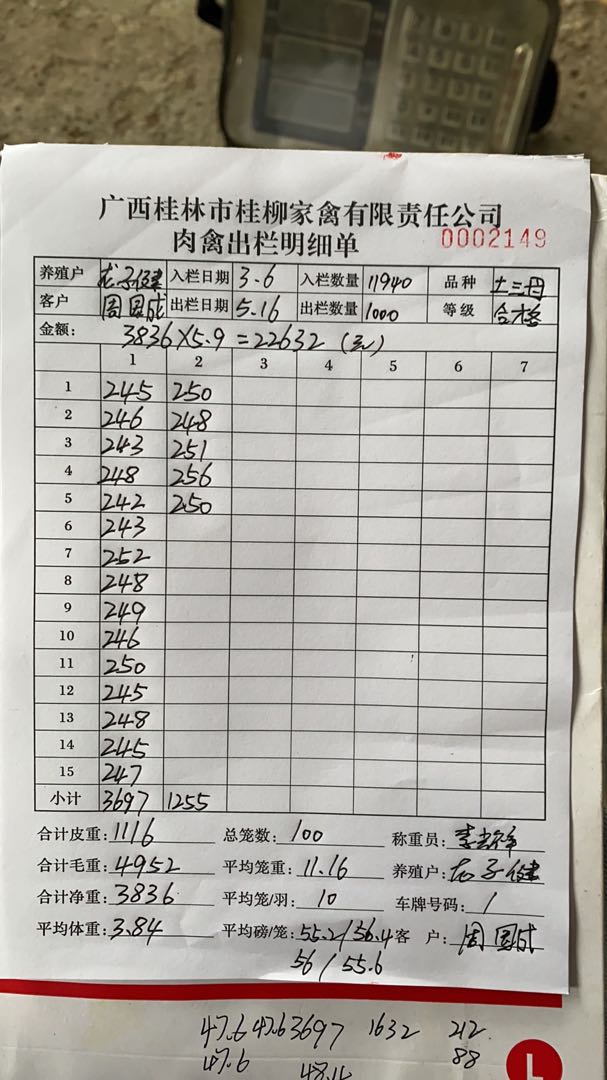 广西桂林市桂柳家禽有限责任公司
肉禽出栏明细单 0002149
养殖户 龙子健 入栏日期 3.6 入栏数量 11940 品种 土三母
客户 周国成 出栏日期 5.16 出栏数量 1000 等级 合格
金额: 3836×5.9=22632(元)
1 2 3 4 5 6 7
1 245 250
2 246 248
3 243 251
4 248 256
5 242 250
6 243
7 252
8 248
9 249
10 246
11 250
12 245
13 248
14 245
15 247
小计 3697 1255
合计皮重:1116 总笼数:100 称重员:
合计毛重:4952 平均笼重:11.16 养殖户:龙子健
合计净重:3836 平均笼/羽:10 车牌号码:/
平均体重:3.84 平均磅/笼:55.2/56.4 客 户:周国成
56/55.6
47.6 47.6 3697 1632 212
47.6 88
L